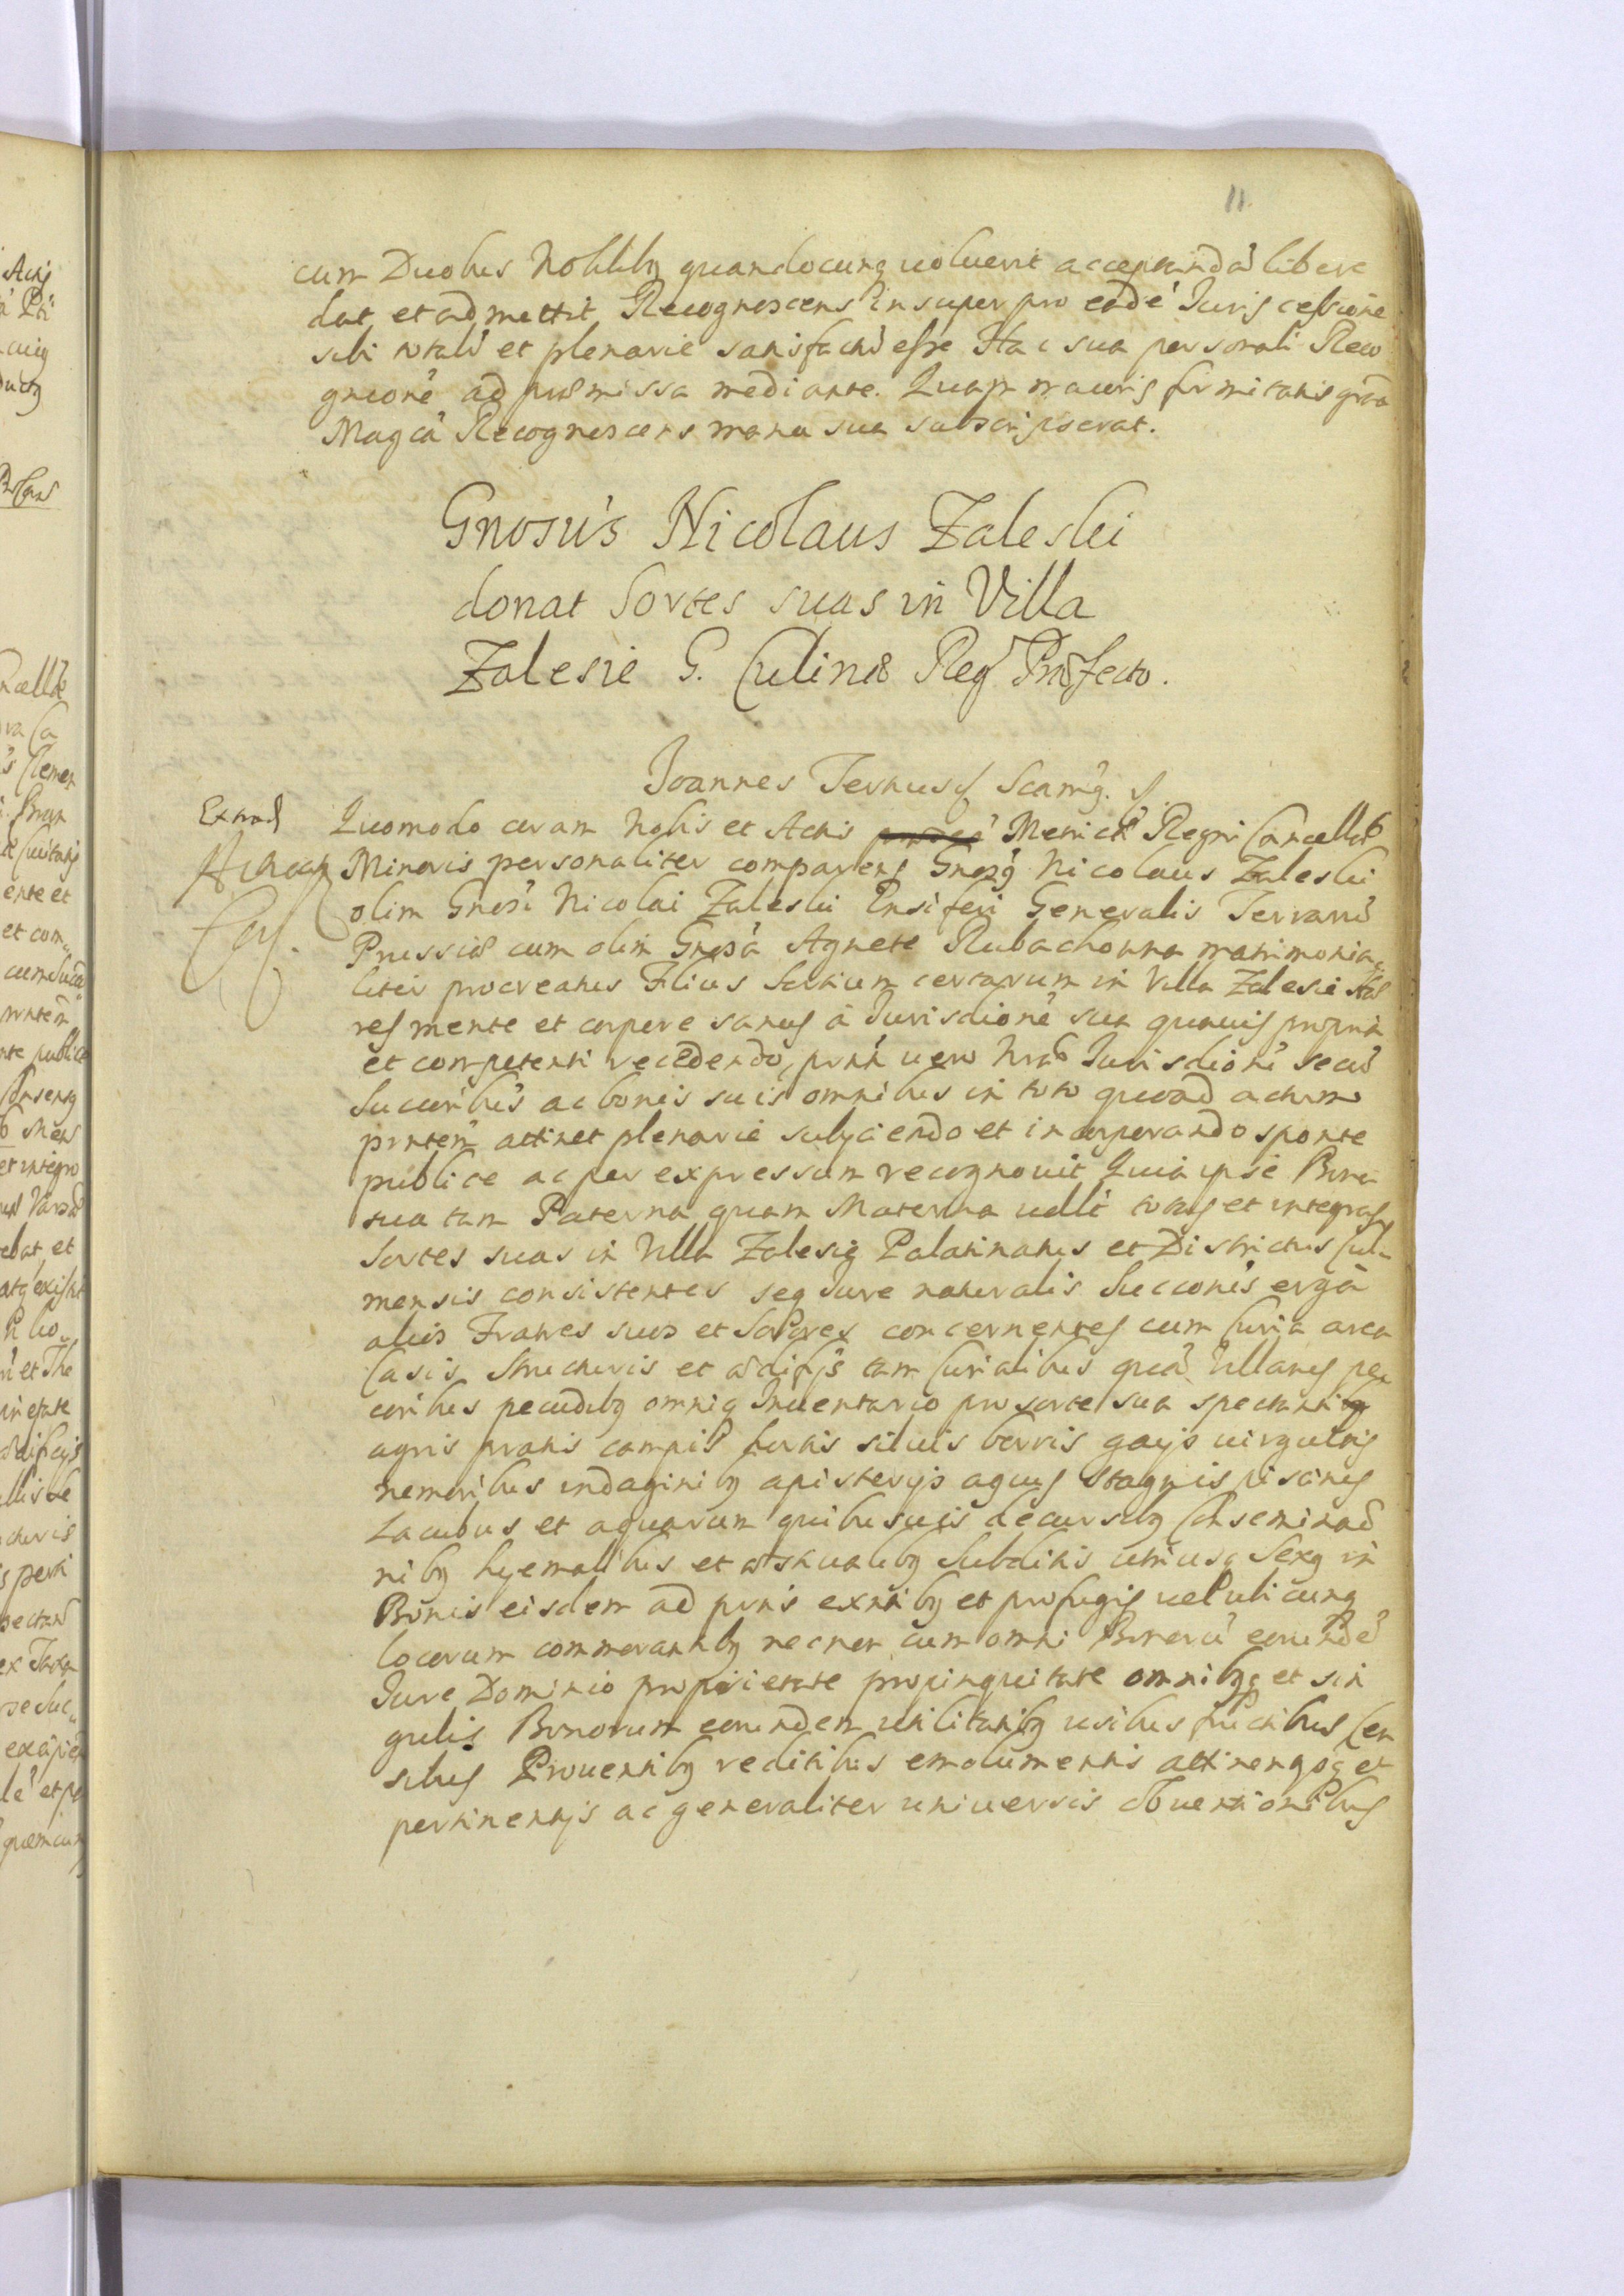 11.
cum Duobus Nobilibq quandocunq uoluerit acceptandã libere
dat et admittit Recognoscens insuper pro eadé Juris cessione
sibi totalr̃ et plenarie satisfactũ esse Hac sua personali Reco
gnitionẽ ad præmissa mediante. Quam maioris firmitatis grã
Magcã Recognoscens manu sua subscripserat.
Gnosus Nicolaus Zaleski
donat Sortes suas in Villa
Zalesie G. Culinæ Reg Præfecto.
Joannes
Extrad
Quomodo coram Nobis et Actis Metricæ Regni Cancellæ
Minoris personaliter comparens Gnosq Nicolaus Zaleski
olim Gnosi Nicolai Zaleski Ensiferi Generalis Terrarũ
Prussiæ cum olim Gnosã Agnete Rubachowna matrimonia„
liter procreatus Filius Sortium certarum in Villa Zalesie Hæ
res mente et corpore sanus à Jurisdictionẽ sua quauis propria
et competenti recedendo, pnti uero Nræ Jurisdictioni se cũ
Succoribus ac bonis suis omnibus in toto quoad actum
pntem attinet plenarie subijciendo et incorporando sponte
publice ac per expressum recognouit Quia ipse Bona
sua tam Paterna quam Materna uidlt totas et integras
Sortes suas in Villa Zalesie Palatinatus et Districtus Cul„
mensis consistentes seq Jure naturalis Succonis ergà
alios Fratres suos et Sorores concernentes cum Curia area
Casis structuris et ædificijs tam Curialibus quã Villanis pe
coribus pecudibq omniq Inuentario pro sorte sua spectantibq
agris pratis campis hortis siluis borris gays uirgultis
nemoribus indaginibq apisterijs aquis stagnis piscinis
Lacubus et aquarum quibusuis decursibq Conseminaõ
nibq hyemalibus et æstiualibq Subditis utriusq Sexq in
Bonis eisdem ad pnns extntibq et profugis uel ubicunq
locorum commorantibq necnon cum omni Bonorũ eorundẽ
Jure Dominio proprietate propinquitate omnibqq et sin
gulis Bonorum eorundem utilitatibq usibus fructibus Cen
sibus Prouentibq reditibus emolumentis attinengosq et
pertinentijs ac generaliter uniuersis obuentionibus